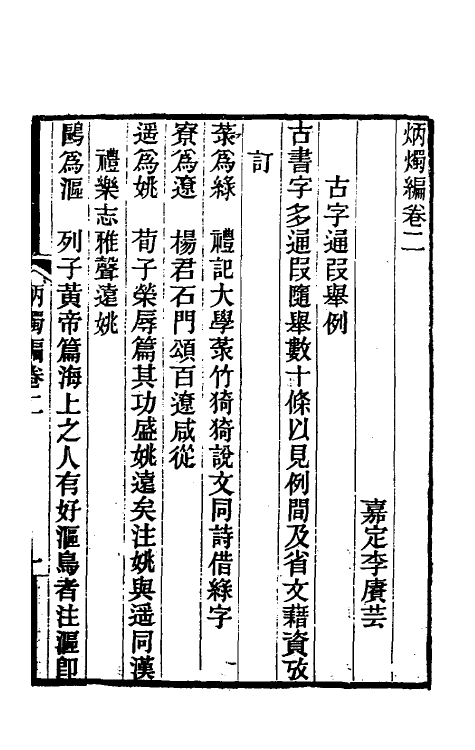 炳燭編卷二
嘉定李賡芸
古字通叚舉例
古書字多通叚隨舉數十條以見例間及省文藉資攷
訂
菉為綠　禮記大學菉竹猗猗說文同詩借綠字
寮為遼　楊君石門頌百遼咸從
遥為姚　荀子榮辱篇其功盛姚遠矣注姚與遥同漢
禮樂志雅聲遠姚
鷗為漚　列子黃帝篇海上之人有好漚鳥者注漚卽
炳燭編卷二
一